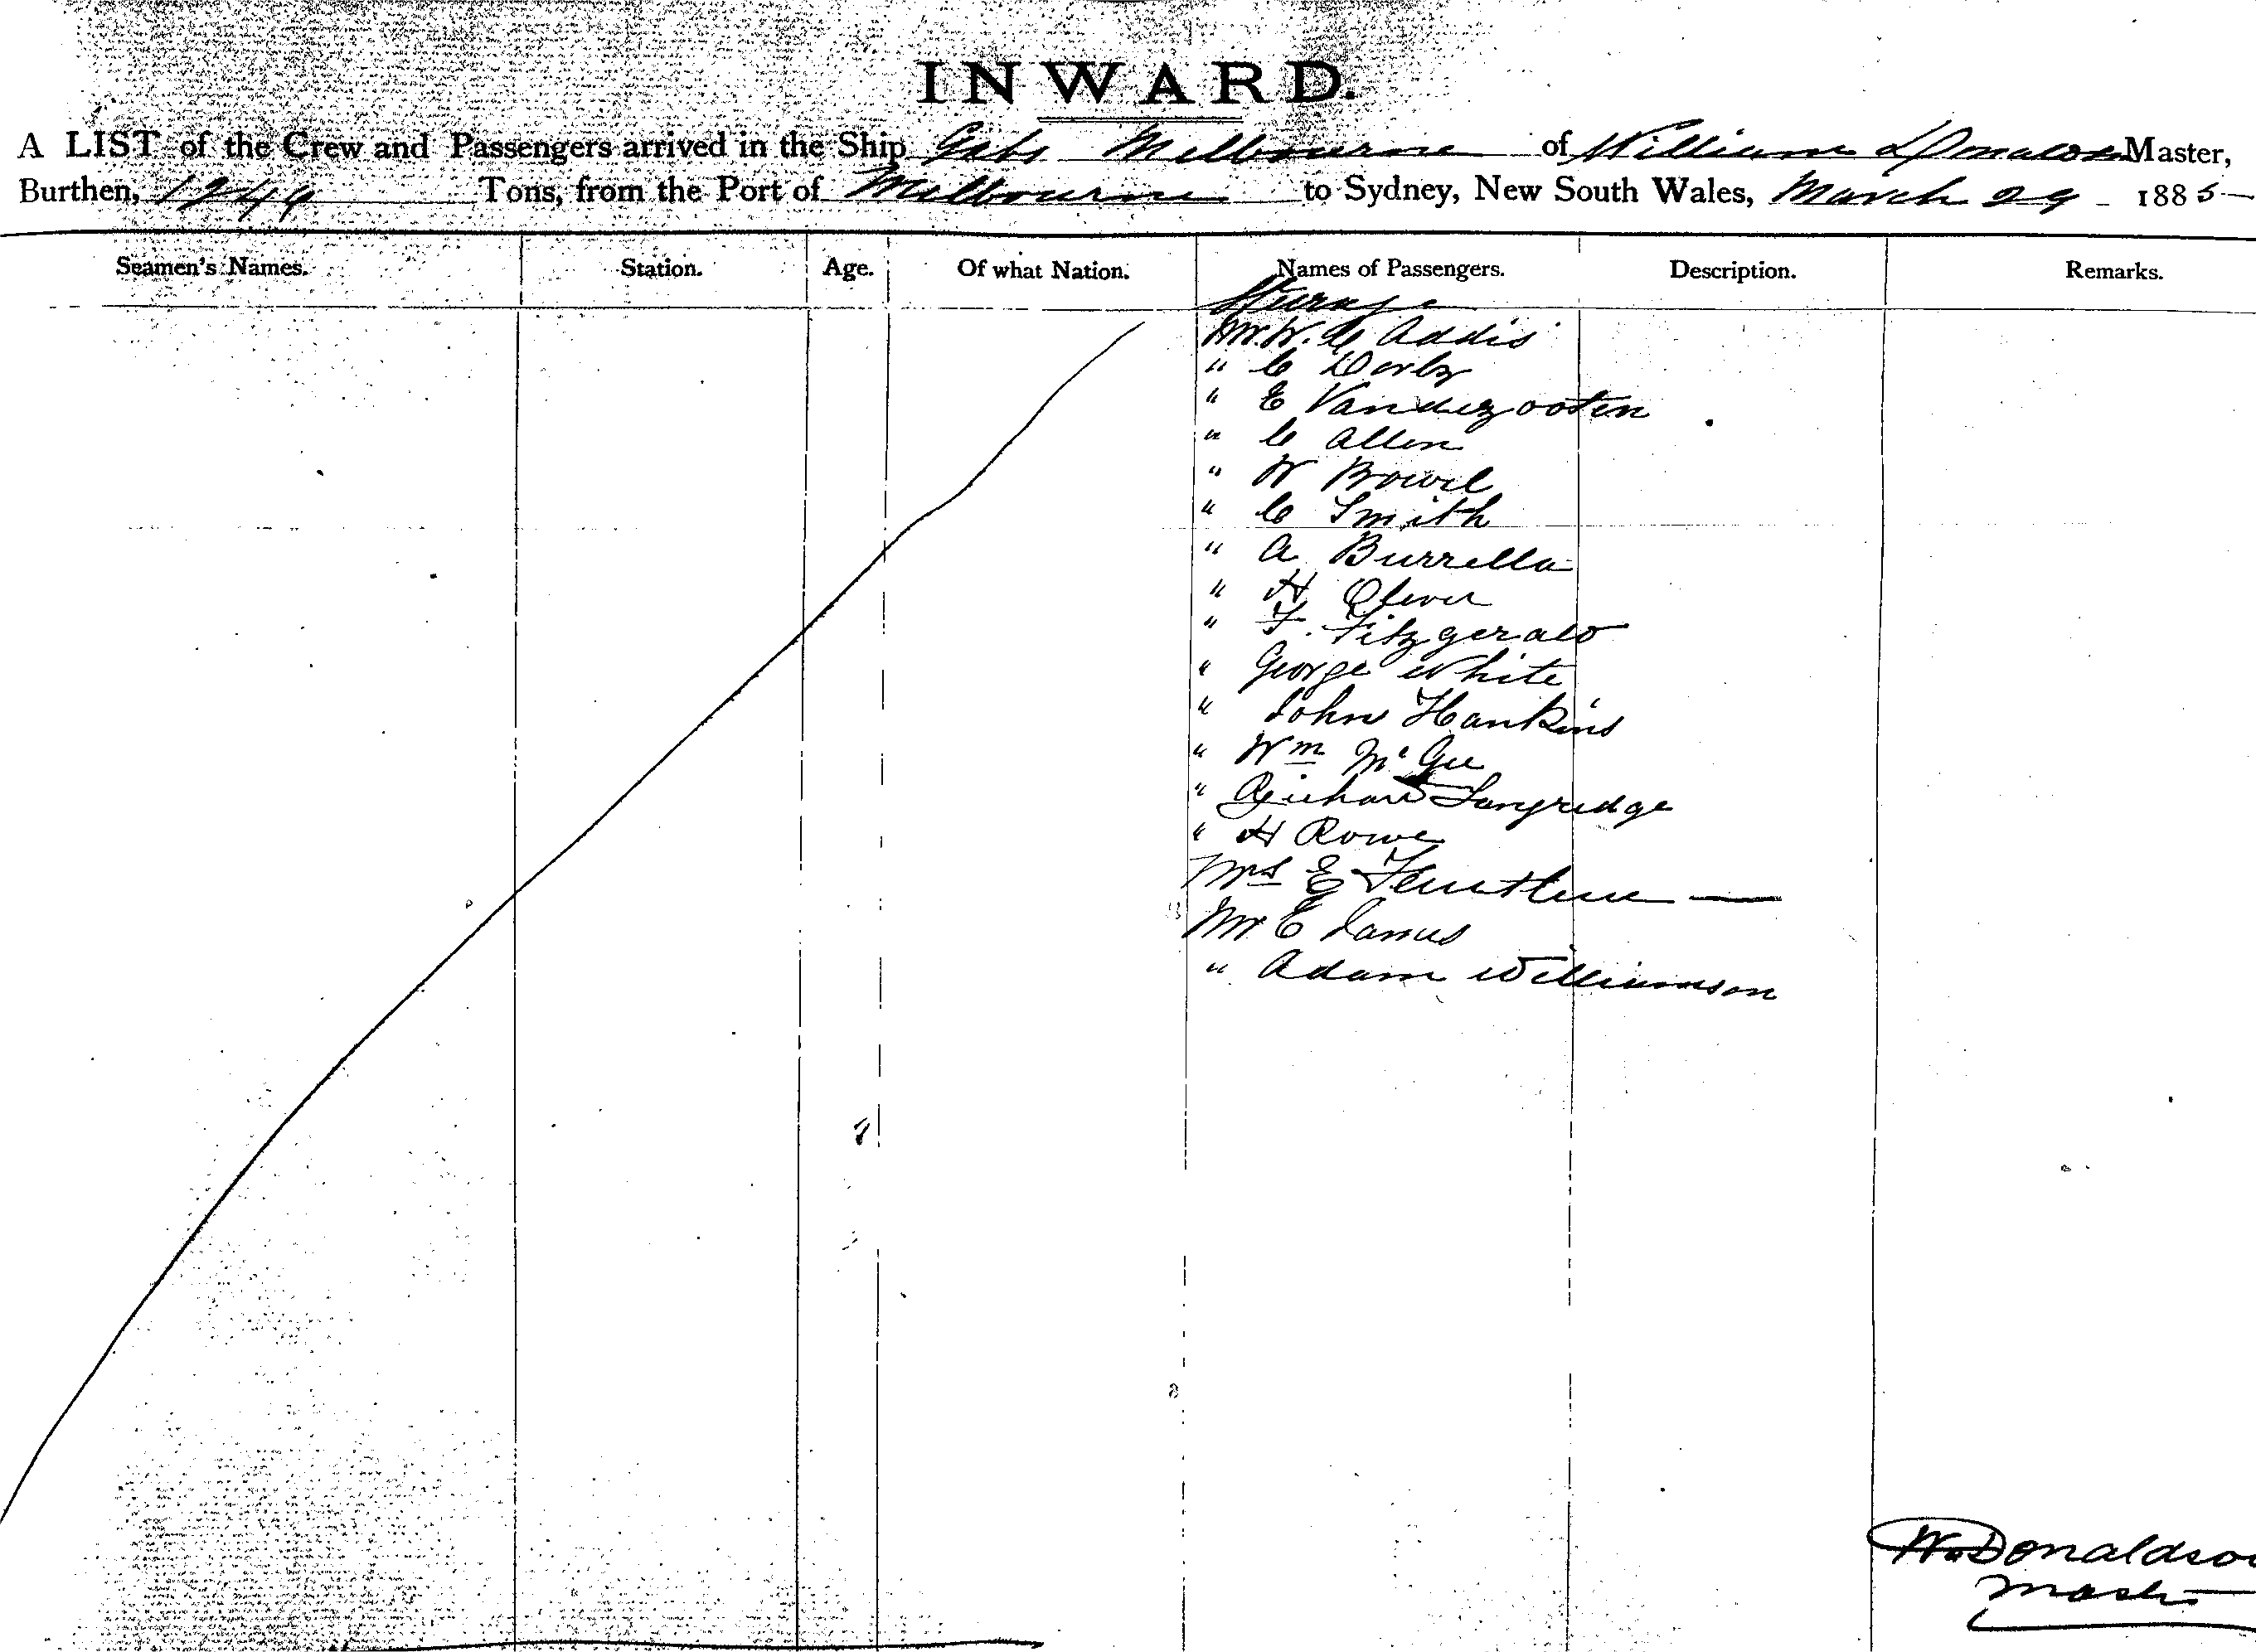 INWARD.
A LIST of the Crew and Passengers arrived in the Ship Melbourne of William Donaldson Master,
Burthen, 1249 Tons, from the Port of Melbourne to Sydney, New South Wales, March 29 1885
Seamen's Names. Station. Age. Of what Nation. Names of Passengers. Description. Remarks.
Steerage
Mr. W. Addis
" C Derby
" E Vandezooten
" C Allen
" W
" C Smith
" A Burrella
" H Oliver
" F. Fitzgerald
" George White
" John Hankins
" Wm McGee
" Richard Langridge
" H Rowe
Mrs E
Mr E James
" Adam Williamson
W. Donaldson
Master